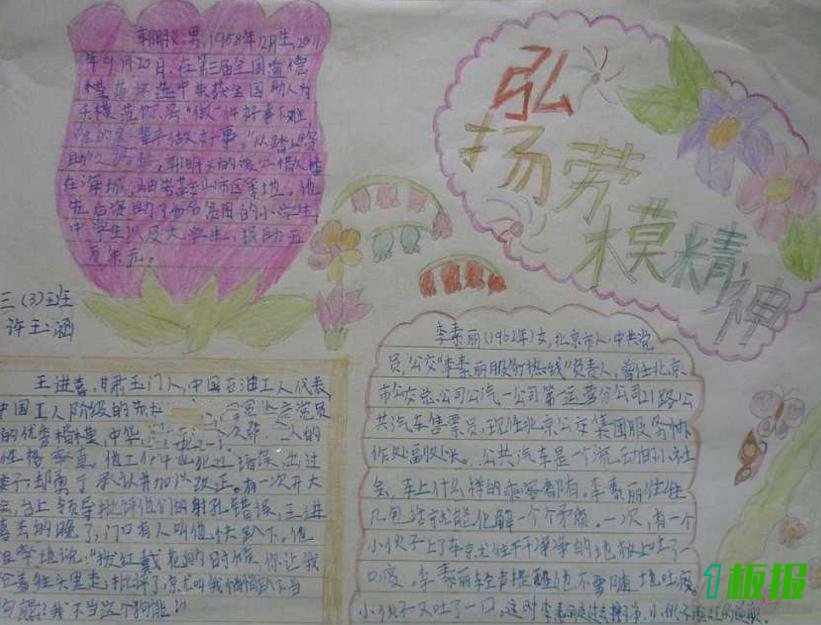 弘
扬劳
模精神
郭明义,男,1958年12月生,2011
年9月20日,在第三届全国道德
模范评选中荣获全国助人为
乐模范称号。"做一件好事不难
难的是一辈子做好事。"从
助
在海城、岫岩、鞍山市区等地。他
先后资助了 名贫困的小学生、
中学生以及大学生,捐助五
万余元。
三(3)班
许玉涵
王进喜,甘肃玉门人,中国石油工人代表
中国工人阶级的 党员
的优秀楷模,中华 人的
性格率直,他工作中出过错误,出过
娄子,却勇于承认并加以改正。有一次开大
会,台上领导批评他们的射孔错误,王进
喜去的晚了,门口有人叫他快趴下,他
说:"披红戴花的时候,你让我
往头里走,批评了,就叫我 趴下当
狗熊?我不当这个狗熊!"
李素丽(1962年)女,北京市人,中共党
员,公交"李素丽服务热线"负责人,曾任北京
市公交总公司公汽一公司第一运营分公司21路公
共汽车售票员,现任北京公交集团服务协
作处副处长。公共汽车是一个流动的小社
会,车上什么样的乘客都有。李素丽往往
几句话就能化解一个个矛盾。一次,有一个
小伙子上了车就往干干净净的地板上吐了一
口痰。李素丽轻声提醒他不要随地吐痰
小伙子又吐了一口。这时李素丽 小伙子
1板报